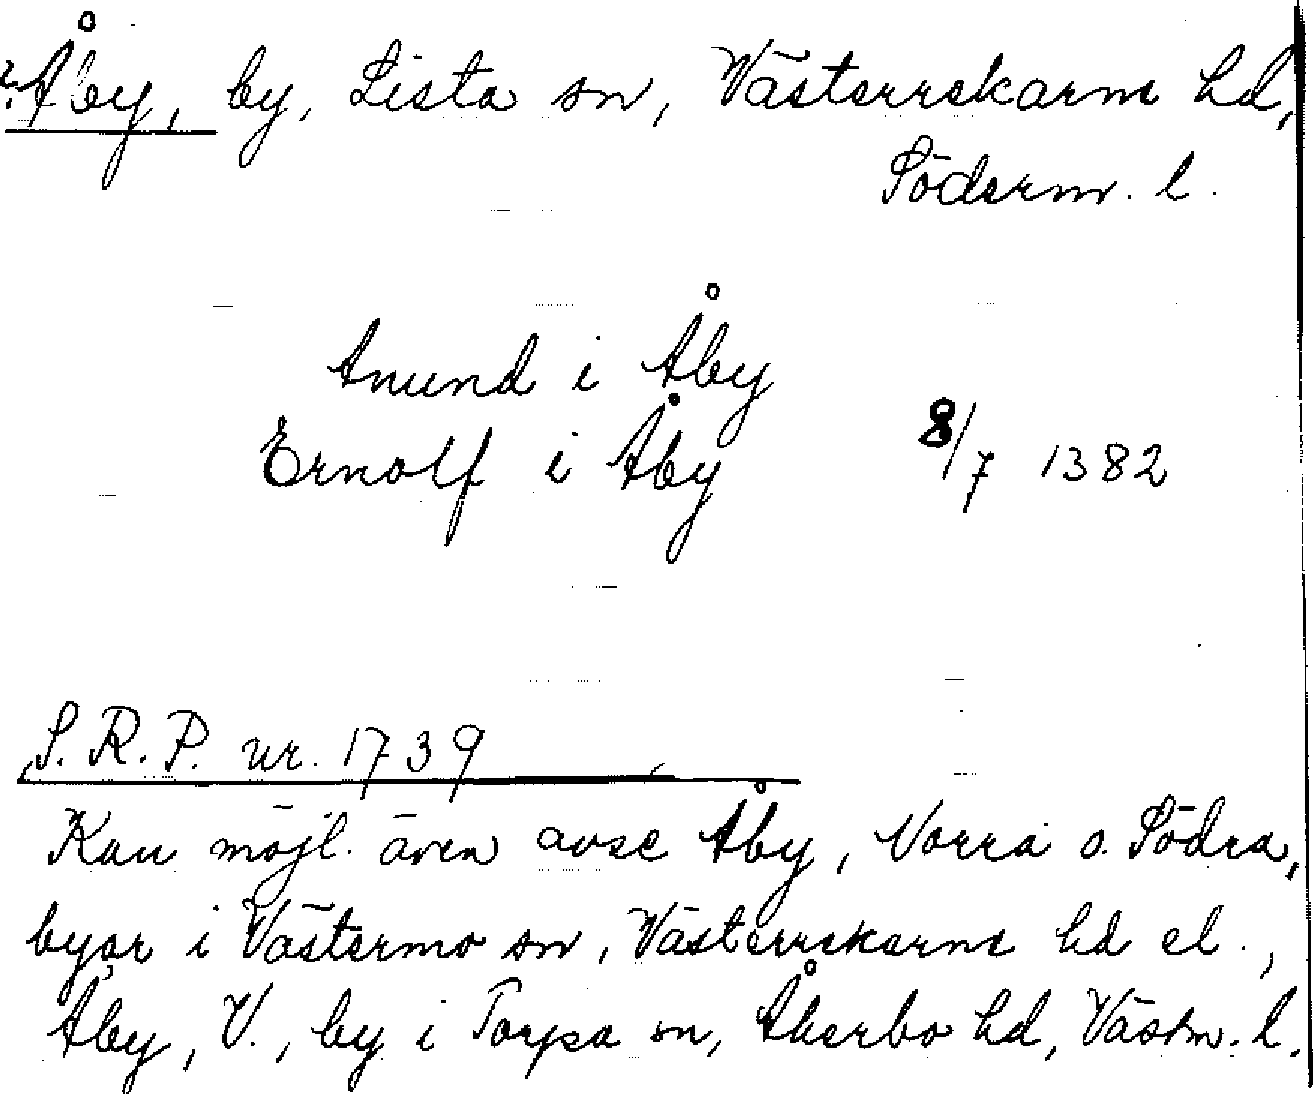 ? Åby, by, Lista sn, Västerrekarne hd,
Söderm. l.
Anund i Åby
Ernolf i Åby 8/7 1382
S. R. P. nr. 1739
Kan möjl. även avse Åby, Norra o. Södra,
byar i Västermo sn, Västerrekarne hd el.,
Åby, V., by i Torpa sn, Åkerbo hd, Västm. l.